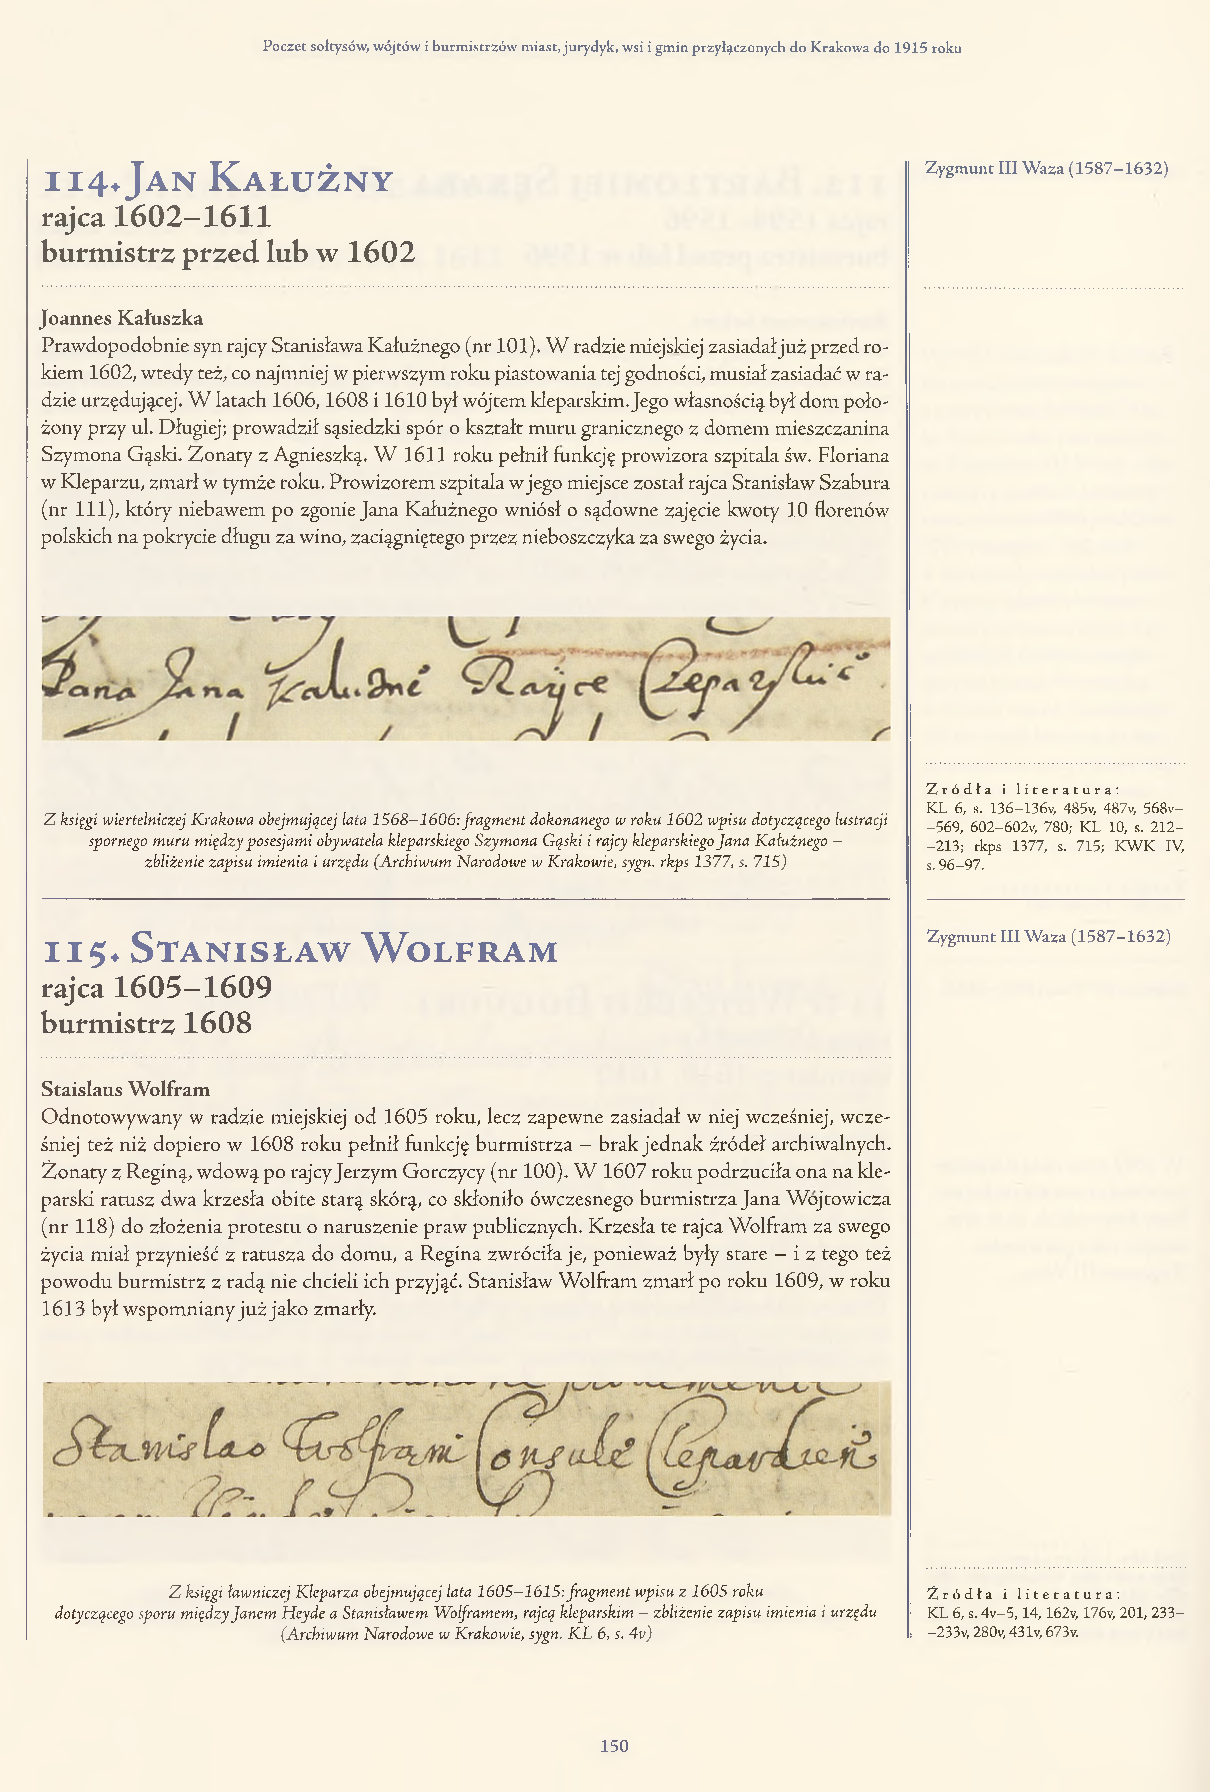 Poczet sołtysów, wójtów i burmistrzów miast, jurydyk, wsi i gmin przyłączonych do Krakowa do 1915 roku
114. Jan Kałużny
rajca 1602–1611
burmistrz przed lub w 1602
Zygmunt III Waza (1587–1632)
Joannes Kałuszka
Prawdopodobnie syn rajcy Stanisława Kałużnego (nr 101). W radzie miejskiej zasiadał już przed ro-
kiem 1602, wtedy też, co najmniej w pierwszym roku piastowania tej godności, musiał zasiadać w ra-
dzie urzędującej. W latach 1606, 1608 i 1610 był wójtem kleparskim. Jego własnością był dom poło-
żony przy ul. Długiej; prowadził sąsiedzki spór o kształt muru granicznego z domem mieszczanina
Szymona Gąski. Zonaty z Agnieszką. W 1611 roku pełnił funkcję prowizora szpitala św. Floriana
w Kleparzu, zmarł w tymże roku. Prowizorem szpitala w jego miejsce został rajca Stanisław Szabura
(nr 111), który niebawem po zgonie Jana Kałużnego wniósł o sądowne zajęcie kwoty 10 florenów
polskich na pokrycie długu za wino, zaciągniętego przez nieboszczyka za swego życia.
Pana Jana Kałużne Rayce
Z księgi wiertelniczej Krakowa obejmującej lata 1568–1606: fragment dokonanego w roku 1602 wpisu dotyczącego lustracji
spornego muru między posesjami obywatela kleparskiego Szymona Gąski i rajcy kleparskiego Jana Kałużnego –
zbliżenie zapisu imienia i urzędu (Archiwum Narodowe w Krakowie, sygn. rkps 1377, s. 715)
Zródła i literatura:
KL 6, s. 136–136v, 485v, 487v, 568v–
–569, 602–602v, 780; KL 10, s. 212–
–213; rkps 1377, s. 715; KWK IV,
s. 96–97.
115. Stanisław Wolfram
rajca 1605–1609
burmistrz 1608
Zygmunt III Waza (1587–1632)
Staislaus Wolfram
Odnotowywany w radzie miejskiej od 1605 roku, lecz zapewne zasiadał w niej wcześniej, wcze-
śniej też niż dopiero w 1608 roku pełnił funkcję burmistrza – brak jednak źródeł archiwalnych.
Żonaty z Reginą, wdową po rajcy Jerzym Gorczycy (nr 100). W 1607 roku podrzuciła ona na kle-
parski ratusz dwa krzesła obite starą skórą, co skłoniło ówczesnego burmistrza Jana Wójtowicza
(nr 118) do złożenia protestu o naruszenie praw publicznych. Krzesła te rajca Wolfram za swego
życia miał przynieść z ratusza do domu, a Regina zwróciła je, ponieważ były stare – i z tego też
powodu burmistrz z radą nie chcieli ich przyjąć. Stanisław Wolfram zmarł po roku 1609, w roku
1613 był wspomniany już jako zmarły.
Stanislao Wolfram Consule Clepardien
Z księgi ławniczej Kleparza obejmującej lata 1605–1615: fragment wpisu z 1605 roku
dotyczącego sporu między Janem Heyde a Stanisławem Wolframem, rajcą kleparskim – zbliżenie zapisu imienia i urzędu
(Archiwum Narodowe w Krakowie, sygn. KL 6, s. 4v)
Źródła i literatura:
KL 6, s. 4v–5, 14, 162v, 176v, 201, 233–
–233v, 280v, 431v, 673v.
150